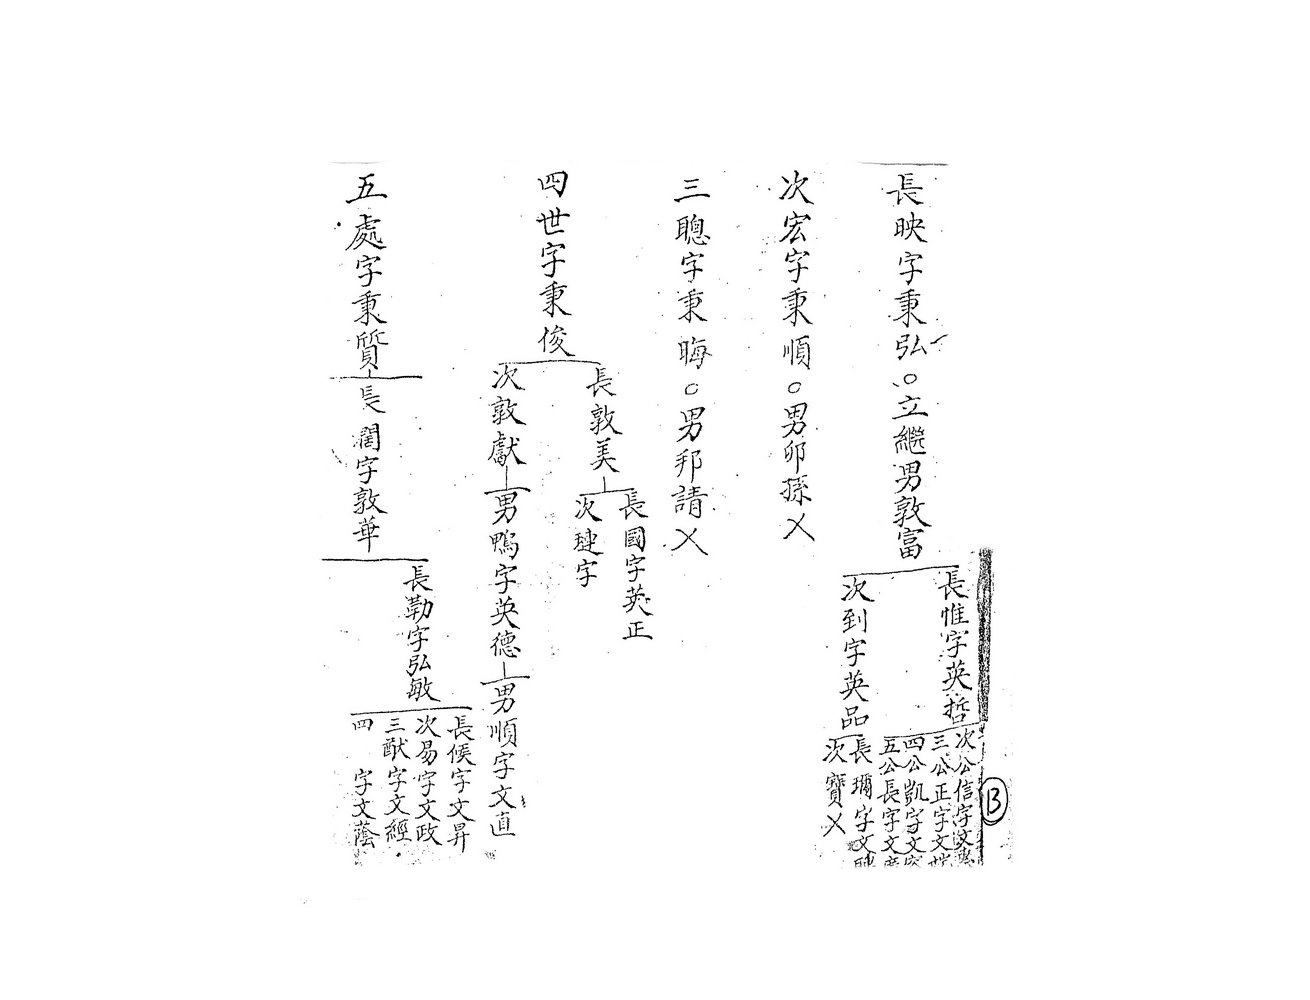 長映字秉弘○立繼男敦富
長惟字英哲
次公信字文
三公正字文世
四公凱字文容
五公長字文
次到字英品
長璊字文聘
次寶乂
次宏字秉順○男卯孫乂
三聰字秉晦○男邦請乂
四世字秉俊
長敦美
長國字英正
次璉字
次敦獻
男鴨字英德
男順字文直
五處字秉質
長潤字敦華
長勒字弘敏
長候字文昇
次易字文政
三猷字文經
四 字文蔭
B